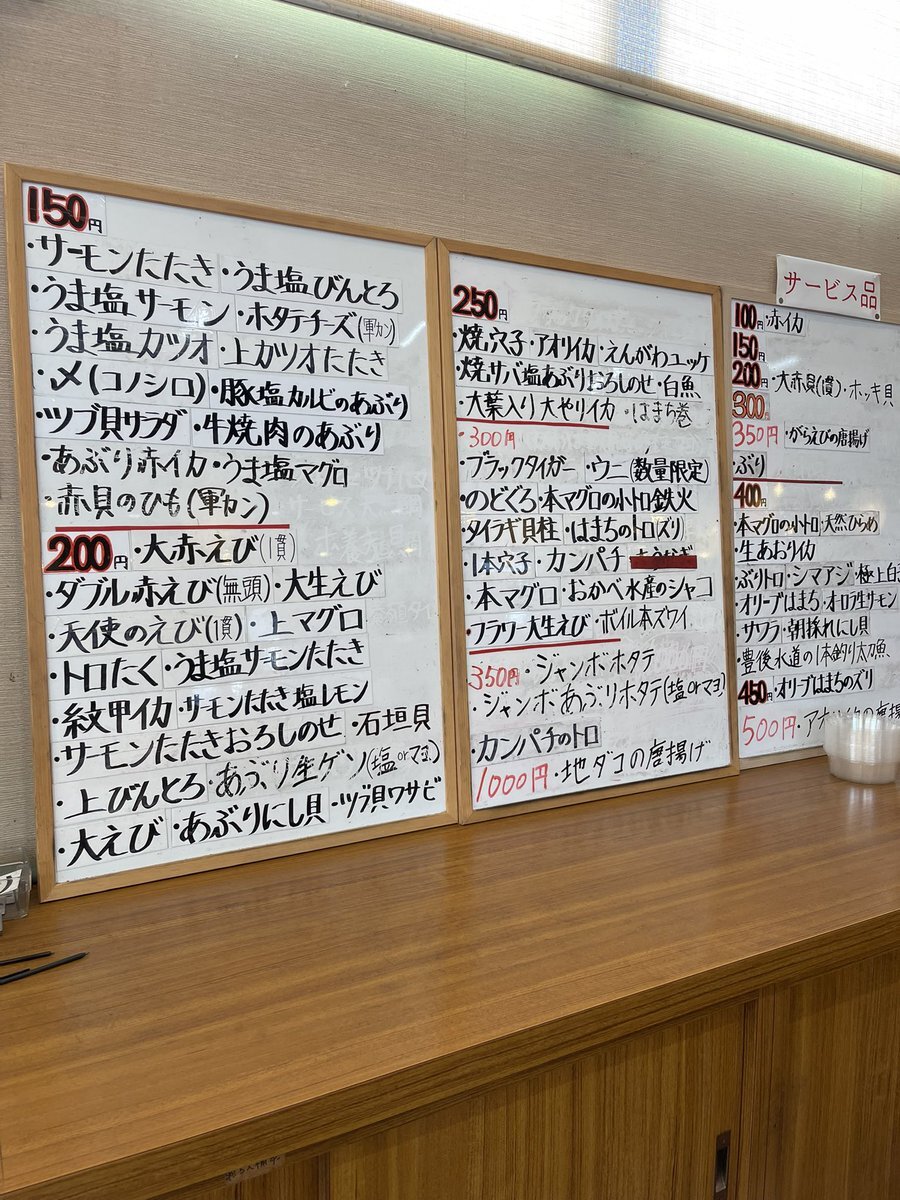 150円
・サーモンたたき・うま塩びんとろ
・うま塩サーモン・ホタテチーズ(軍カン)
・うま塩カツオ・上カツオたたき
・〆(コノシロ)・豚塩カルビのあぶり
・ツブ貝サラダ・牛焼肉のあぶり
・あぶり赤イカ・うま塩マグロ
・赤貝のひも(軍カン)
200円・大赤えび(1貫)
・ダブル赤えび(無頭)・大生えび
・天使のえび(1貫)・上マグロ
・トロたく・うま塩サーモンたたき
・紋甲イカ・サーモンたたき塩レモン
・サーモンたたきおろしのせ・石垣貝
・上びんとろ・あぶり生ゲソ(塩orマヨ)
・大えび・あぶりにし貝・ツブ貝ワサビ
250円
・焼穴子・アオリイカ・えんがわユッケ
・焼サバ塩あぶりおろしのせ・白魚
・大葉入り大やりイカ・はまち巻
・300円
・ブラックタイガー・ウニ(数量限定)
・のどぐろ・本マグロの小トロ鉄火
・タイラギ貝柱・はまちのトロズリ
・1本穴子・カンパチ
・本マグロ・おかべ水産のシャコ
・フラワー大生えび・ボイル本ズワイ
350円・ジャンボホタテ
・ジャンボあぶりホタテ(塩orマヨ)
・カンパチのトロ
1000円・地ダコの唐揚げ
サービス品
100円・赤イカ
150円
200円・大赤貝(1貫)・ホッキ貝
300円
350円・がらえびの唐揚げ
・ぶり
400円
・本マグロの小トロ・天然ひらめ
・生あおりイカ
・ぶりトロ・シマアジ・極上白子
・オリーブはまち・オロラ生サーモン
・サワラ・朝採れにし貝
・豊後水道の1本釣り太刀魚
450円・オリーブはまちのズリ
500円・アナ
の唐揚